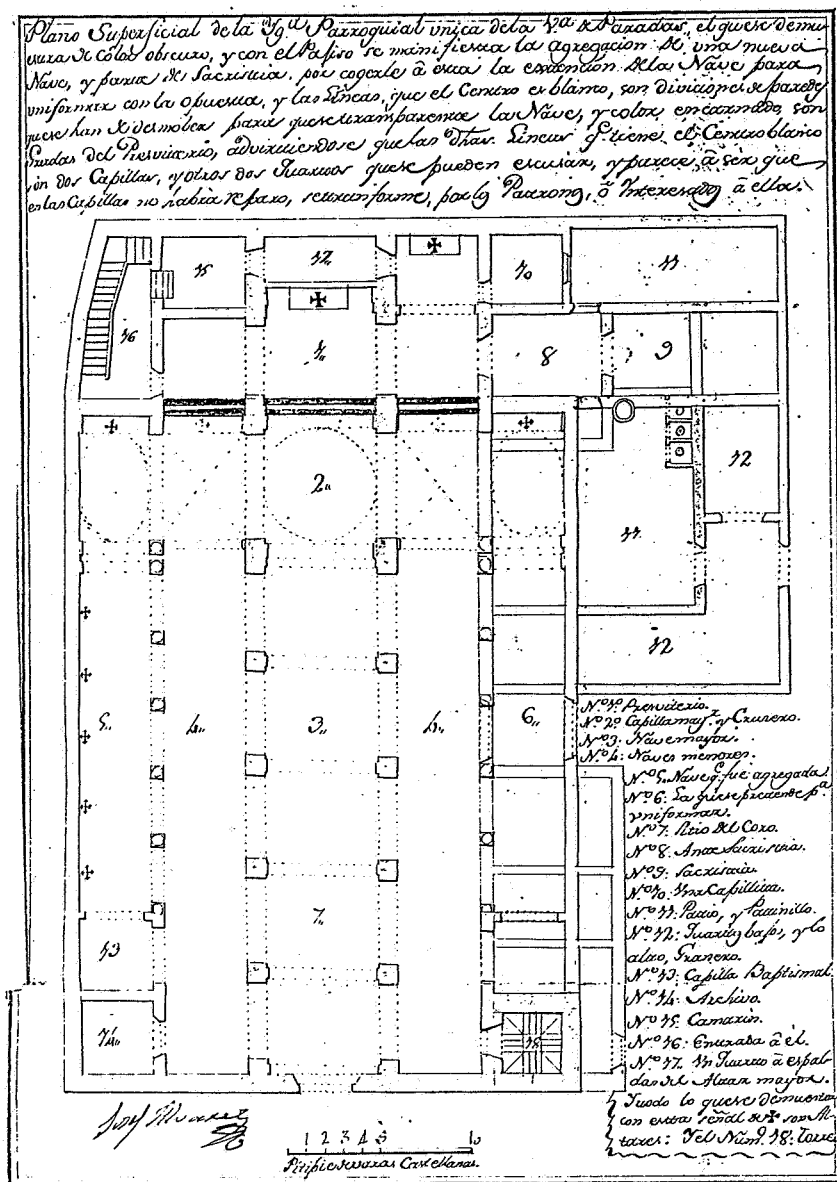 Plano Superficial de la Yg.ª Parroquial unica de la V.ª de Paradas, el que se demu
estra de Color obscuro, y con el Pajiso se manifiesta la agregacion de una nueva
Nave, y parte de Sacristia, por cogerle â esta la extencion de la Nave para
uniformar con la opuesta, y las Lineas, que el Centro es blanco, son divisiones de paredes
que se han de demoler para que se transparente la Nave, y color encarnado, son
Gradas del Presviterio, advirtiendose que las dhas. Lineas q.e tiene el Centro blanco
son dos Capillas, y otros dos Quartos que se pueden escusar, y parece â ser que
en las Capillas no habrà reparo, según informe, por los Patronos, ô Interesados â ella.
15
17
10
11
16
1,,
8
9
2,,
12
11
12
5,,
4,,
3,,
4,,
6,,
7,,
13
14,,
18
N.º 1.º Presviterio.
N.º 2.º Capilla may.r y Cruzero.
N.º 3: Nave mayor.
N.º 4: Naves menores.
N.º 5,, Nave q.e fue agregada
N.º 6: La que se pretende p.ª
uniformar.
N.º 7: Sitio del Coro.
N.º 8: Ante Sacristia.
N.º 9: Sacristia.
N.º 10: Una Capillita.
N.º 11: Patio, y Patinillo.
N.º 12: Quartos bajos, y lo
alto, Granero.
N.º 13: Capilla Baptismal
N.º 14: Archivo.
N.º 15: Camarin.
N.º 16: Entrada â èl.
N.º 17. Un Quarto â espal
das del Altar mayor.
Todo lo que se demuestra
con esta señal de ✠ son Al
tares: Y el Núm.º 18: Torre
Josef Alvarez
1 2 3 4 5 10
Pitipie de varas Castellanas.